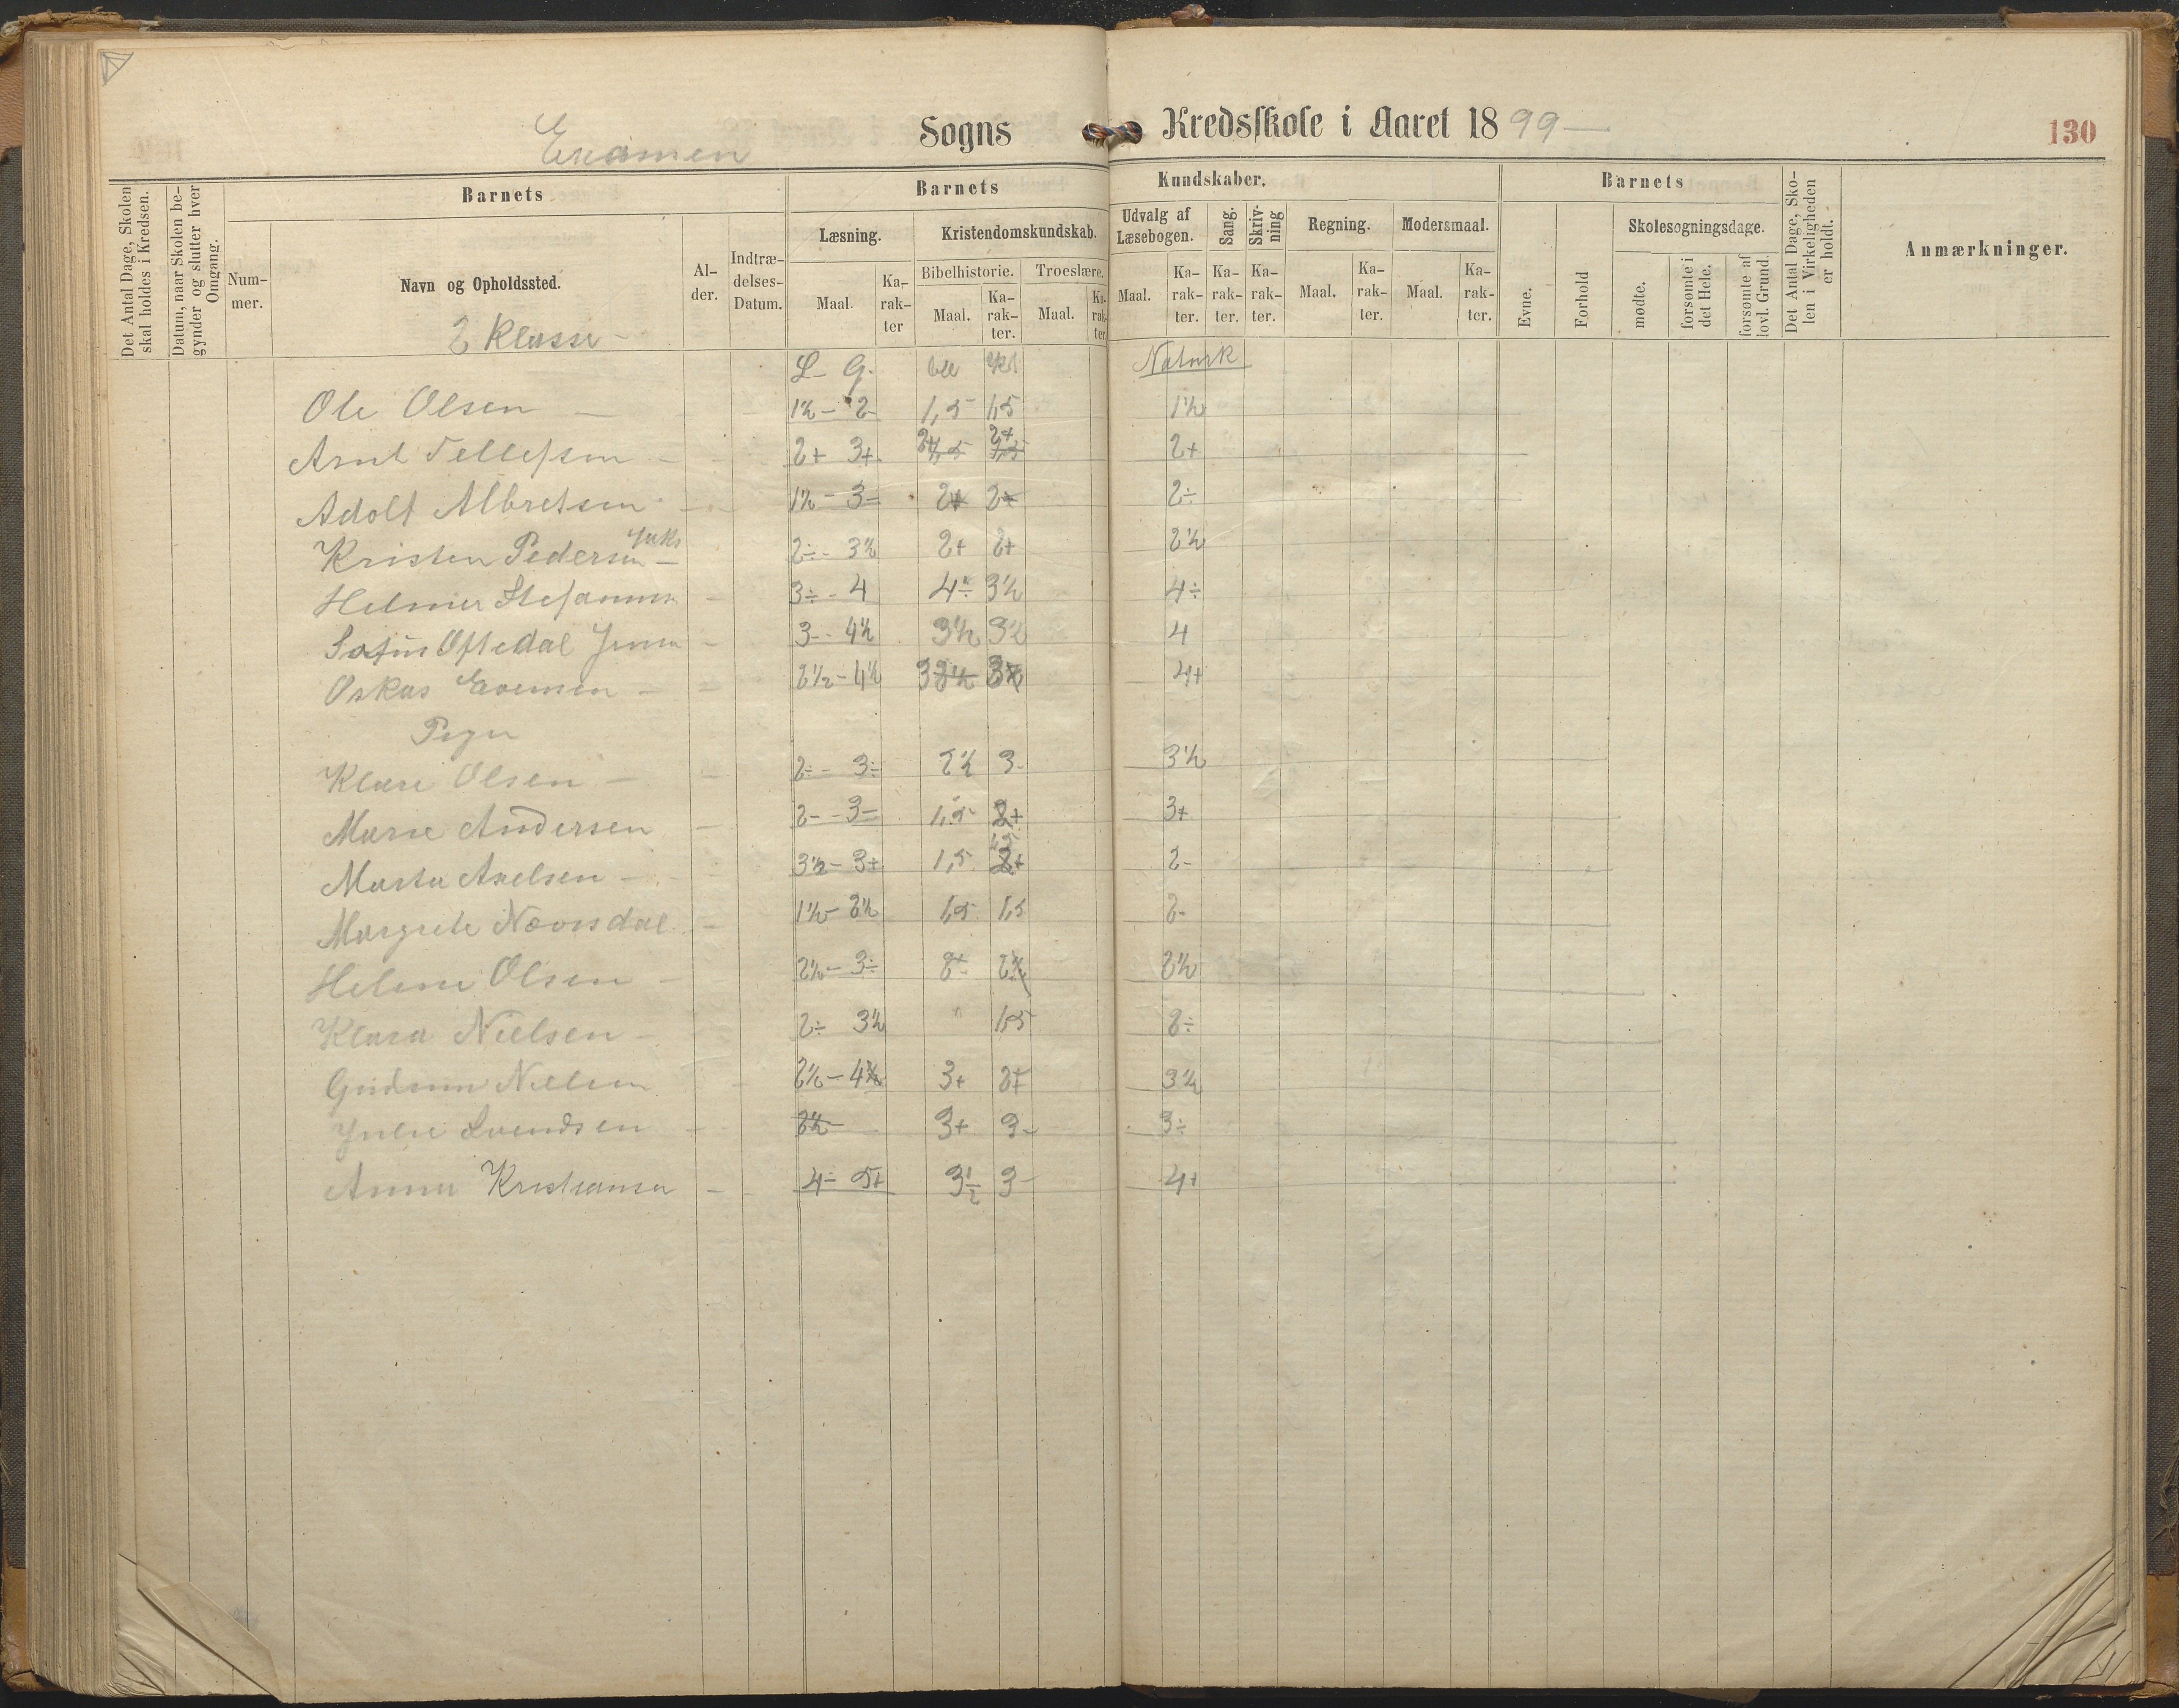 Examen Sogns Kredsskole i Aaret 1899 — 130
Det Antal Dage, Skolen skal holdes i Kredsen.
Datum, naar Skolen begynder og slutter hver Omgang.
Barnets
Nummer.
Navn og Opholdssted.
Alder.
Indtrædelses-Datum.
Barnets Kundskaber.
Læsning.
Maal. Karakter
Kristendomskundskab.
Bibelhistorie. Troeslære.
Maal. Karakter. Maal. Karakter
Udvalg af Læsebogen.
Maal. Karakter.
Sang. Karakter.
Skrivning Karakter.
Regning. Maal. Karakter.
Modersmaal. Maal. Karakter.
Barnets
Evne.
Forhold
Skolesøgningsdage.
mødte.
forsømte i det Hele.
forsømte af lovl. Grund.
Det Antal Dage, Skolen i Virkeligheden er holdt.
Anmærkninger.
2 Klasse –
L – G.
Naturk
Ole Olsen — 1½ – 2– 1,5 1,5 1½
Arnt Tellefsen – 2+ 3+ 2+ 2+ 2+
Adolf Albretsen – 1½ – 3– 2+ 2+ 2÷
Kristen Pedersen – 2÷ – 3½ 2+ 2+ 2½
Helmer Stefansen – 3÷ – 4 4÷ 3½ 4÷
Oftedal Jensen – 3 – – 4½ 3½ 3½ 4
Oskar Evensen – 2½ – 4½ 3 3 4+
Piger
Klare Olsen – 2÷ – 3÷ 2½ 3– 3½
Marie Andersen – 2– – 3– 1,5 2+ 3+
Marta Axelsen – 3½ – 3+ 1,5 1,5 2–
Margrete Nævisdal – 1½ – 2½ 1,5 1,5 2–
Helene Olsen – 2½ – 3÷ 2÷ 2½ 2½
Klara Nielsen – 2÷ 3½ " 1,5 2÷
Gudrun Nielsen 2½ – 4 3+ 2+ 3½
Julie Svendsen – 2½ – 3+ 3– 3÷
Anna Kristiansen – 4 – 5+ 3½ 3– 4+